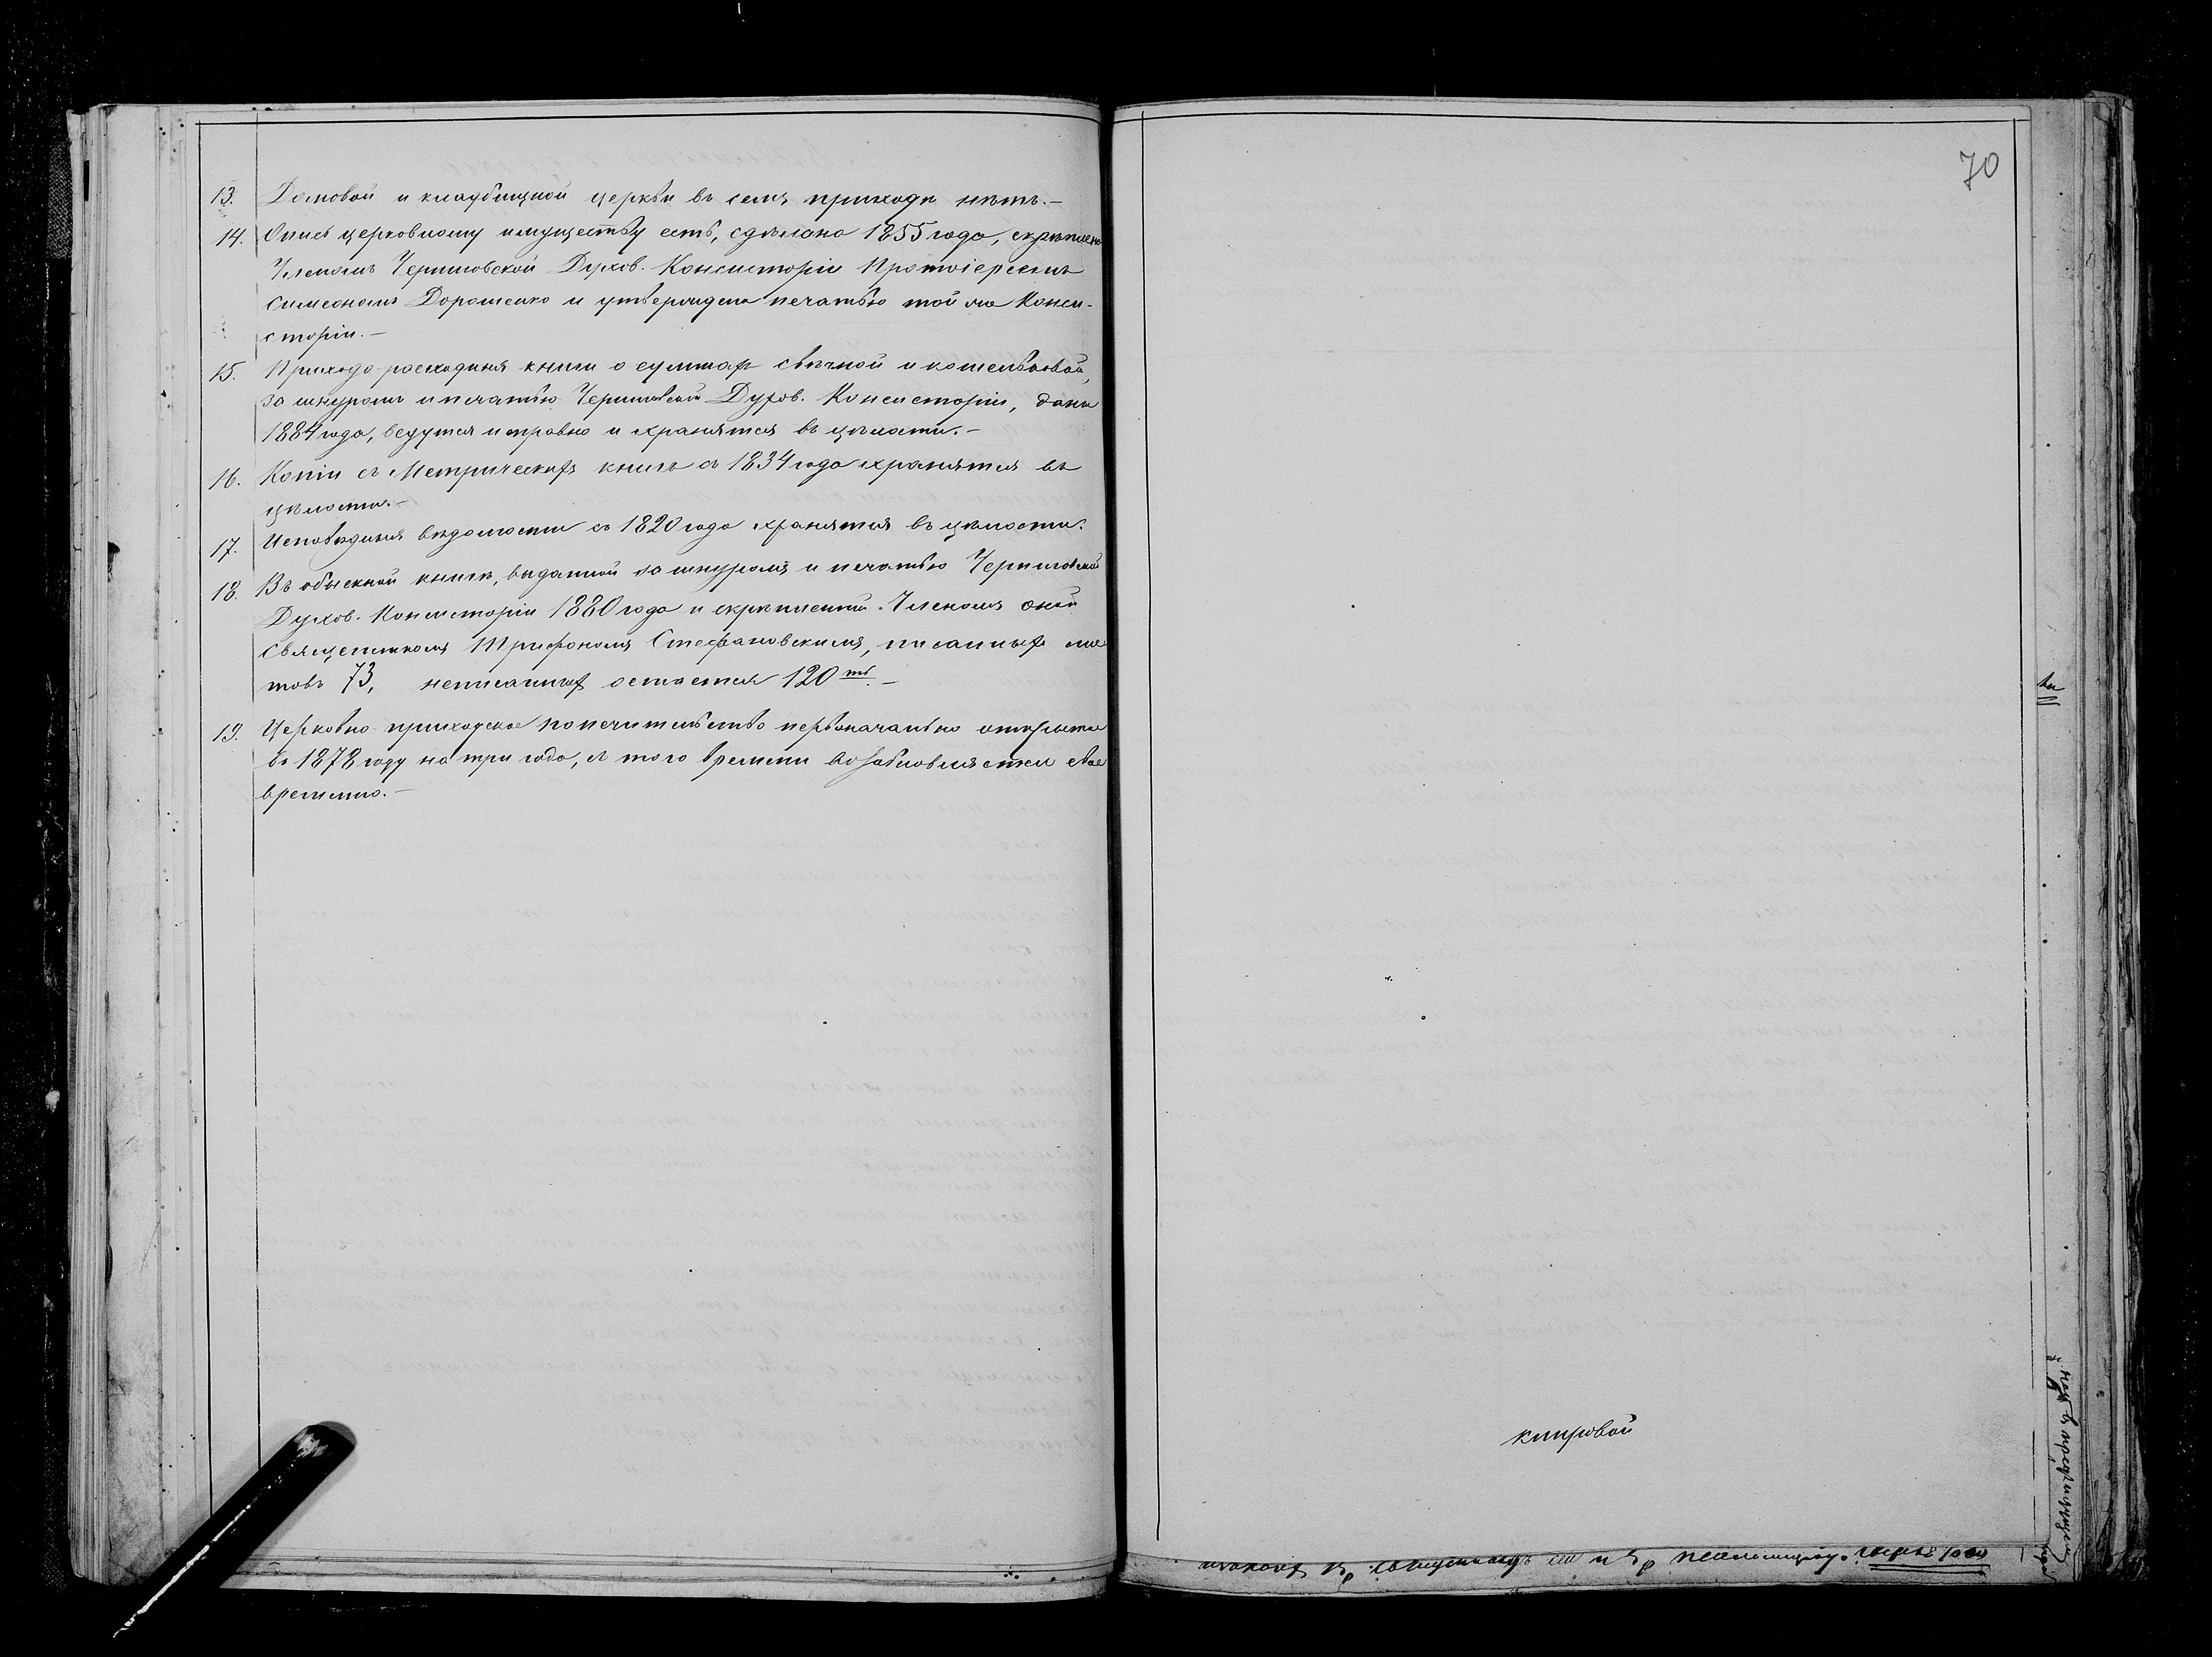 13. Домовой и кладбищной церкви въ семъ приходѣ нѣтъ.—
14. Опись церковному имуществу есть, сдѣлана 1855 года, скрѣплена
Членомъ Черниговской Духов. Консисторіи Протоіереемъ
Симеономъ Дорошенко и утверждена печатью той же Конси-
сторіи.—
15. Приходо-расходныя книги о суммах свѣчной и кошельковой,
за шнуромъ и печатью Черниговской Духов. Консисторіи, даны
1884 года, ведутся исправно и хранятся въ цѣлости.—
16. Копіи съ Метрическихъ книгъ съ 1834 года хранятся въ
цѣлости.—
17. Исповѣдныя вѣдомости съ 1820 года хранятся въ цѣлости.
18. Въ обыскной книгѣ, выданной за шнуромъ и печатью Черниговской
Духов. Консисторіи 1880 года и скрѣпленной Членомъ оной
Священникомъ Трифономъ Стефановскимъ, писанныхъ лис
товъ 73, неписанныхъ остается 120 ть.—
19. Церковно-приходское попечительство первоначально открыто
въ 1878 году на три года, съ того времени возобновляется свое
временно.—
70
клировой